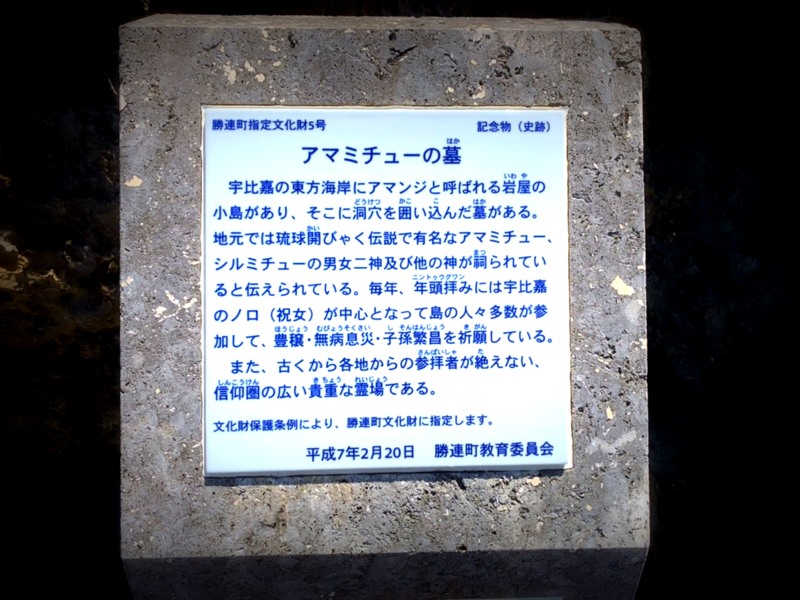 勝連町指定文化財5号　記念物（史跡）
アマミチューの墓
宇比嘉の東方海岸にアマンジと呼ばれる岩屋の
小島があり、そこに洞穴を囲い込んだ墓がある。
地元では琉球開びゃく伝説で有名なアマミチュー、
シルミチューの男女二神及び他の神が祠られてい
ると伝えられている。毎年、年頭拝みには宇比嘉
のノロ（祝女）が中心となって島の人々多数が参
加して、豊穣・無病息災・子孫繁昌を祈願している。
また、古くから各地からの参拝者が絶えない、
信仰圏の広い貴重な霊場である。
文化財保護条例により、勝連町文化財に指定します。
平成7年2月20日　勝連町教育委員会